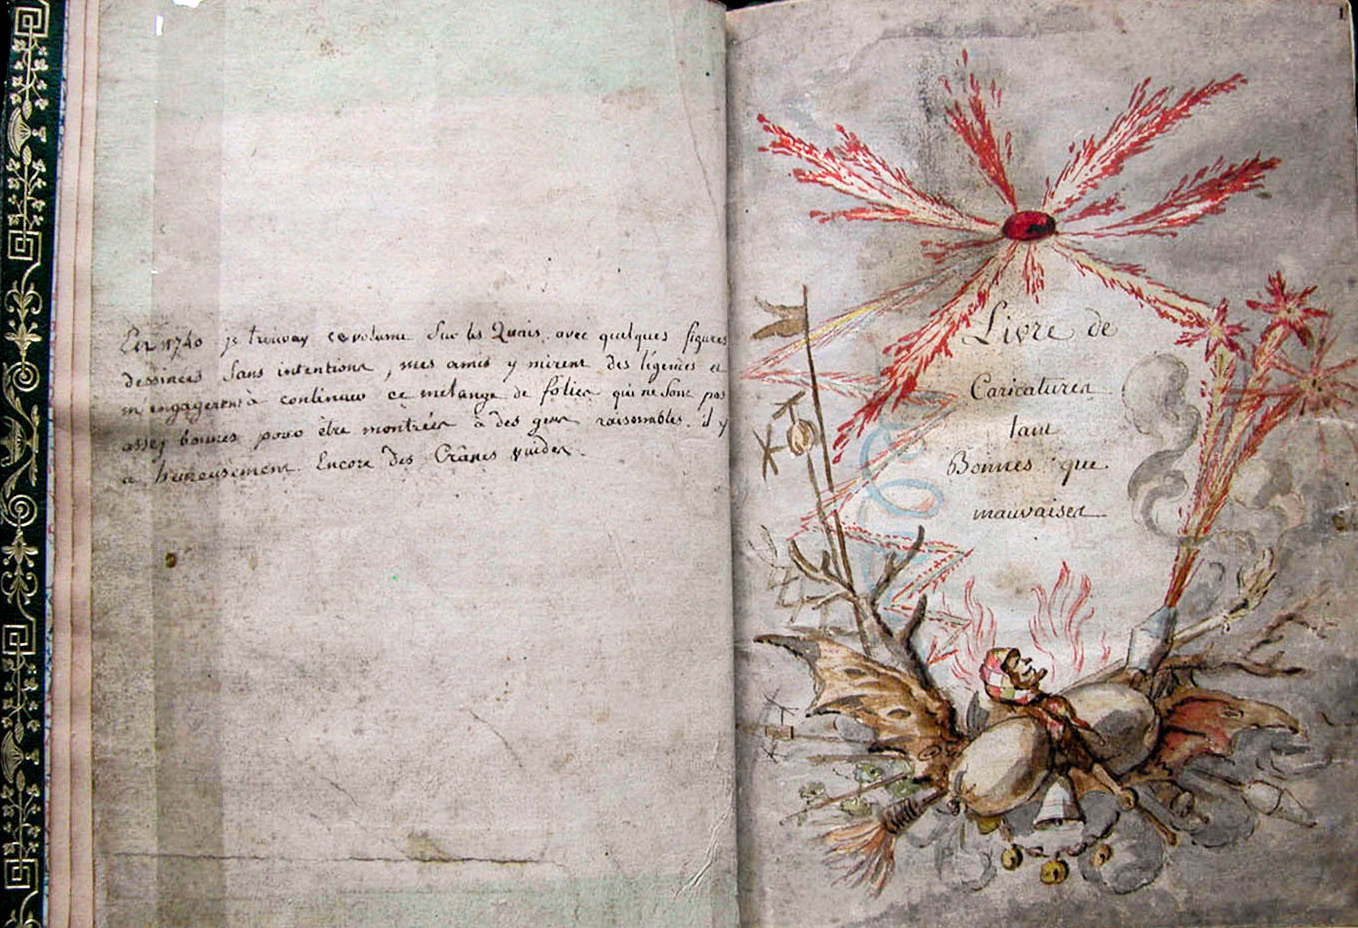 En 1740 je trouvay ce volume sur les Quais, avec quelques figures
dessinées sans intentions, mes amis y mirent des légendes et
m'engagerent a continuer ce mélange de folies qui ne sont pas
assez bonnes pour être montrées à des gens raisonnables. il y
a heureusement Encore des Cranes vuides
1
Livre de
Caricatures
tant
Bonnes que
mauvaises